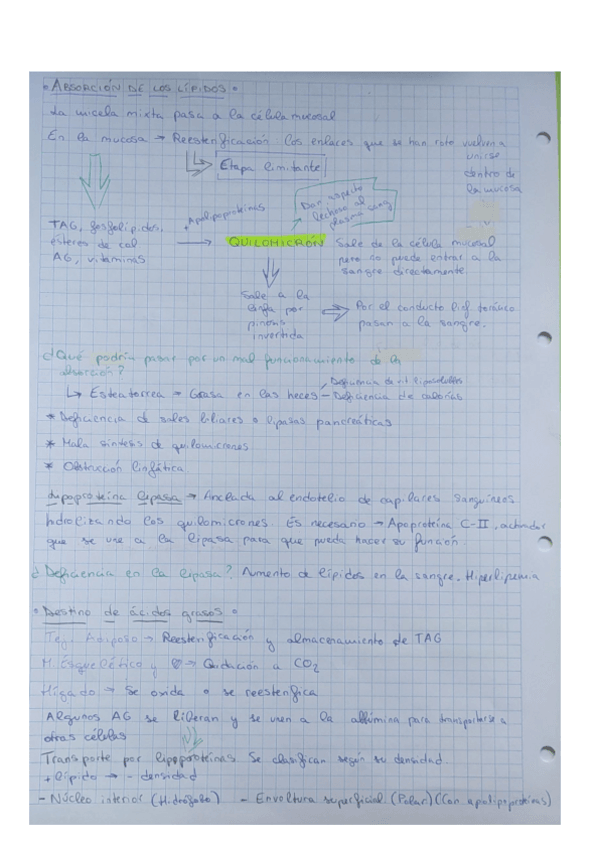 • ABSORCIÓN DE LOS LÍPIDOS •
La micela mixta pasa a la célula mucosal
En la mucosa → Reesterificación los enlaces que se han roto vuelven a
unirse
dentro de
la mucosa
Etapa limitante
TAG, fosfolípidos,
ésteres de col
AG, vitaminas
+Apolipoproteínas
→ QUILOMICRÓN
Dan aspecto
lechoso al
plasma sang
Sale de la célula mucosal
pero no puede entrar a la
sangre directamente
Sale a la
linfa por
pinocis
invertida
⇒ Por el conducto linf. torácico
pasan a la sangre.
¿Qué podría pasar por un mal funcionamiento de la
absorción?
↳ Esteatorrea = Grasa en las heces
Deficiencia de vit. liposolubles
- Deficiencia de calorías
* Deficiencia de sales biliares o lipasas pancreáticas
* Mala síntesis de quilomicrones
* Obstrucción linfática
Lipoproteína lipasa → Anclada al endotelio de capilares sanguíneos
hidrolizando los quilomicrones. Es necesario → Apoproteína C-II, activador
que se une a la lipasa para que pueda hacer su función.
¿Deficiencia en la lipasa? Aumento de lípidos en la sangre. Hiperlipemia
• Destino de ácidos grasos •
Tej. Adiposo → Reesterificación y almacenamiento de TAG
M. Esquelético y → Oxidación a CO2
Hígado → Se oxida o se reesterifica
Algunos AG se liberan y se unen a la albúmina para transportarse a
otras células
Transporte por lipoproteínas. Se clasifican según su densidad.
+ lípido → - densidad
- Núcleo interior (Hidrófobo) - Envoltura superficial (Polar) (Con apolipoproteínas)